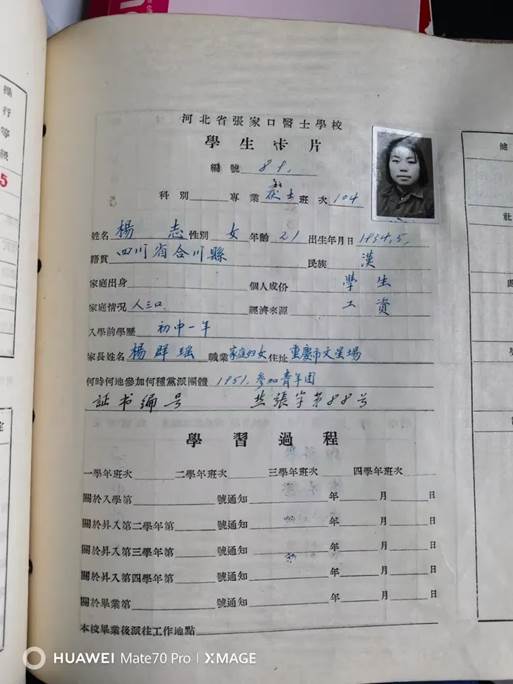 河北省張家口醫士學校
學生卡片
編號 89.
科別 專業 醫士 班次 104
姓名 楊志 性別 女 年齡 21 出生年月日 1934.5.
籍貫 四川省合川縣 民族 漢
家庭出身 個人成份 學生
家庭情況 人三口 經濟來源 工資
入學前學歷 初中一年
家長姓名 楊群瑶 職業 家庭妇女 住址 重慶市文星場
何時何地參加何種黨派團體 1951.参加青年团
証书编号 張字第88号
學習過程
一學年班次 二學年班次 三學年班次 四學年班次
關於入學第 號通知 年 月 日
關於升入第二學年第 號通知 年 月 日
關於升入第三學年第 號通知 年 月 日
關於升入第四學年第 號通知 年 月 日
關於畢業第 號通知 年 月 日
本校畢業後派往工作地點
HUAWEI Mate70 Pro | XMAGE